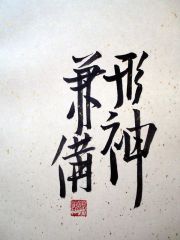 形神
兼備